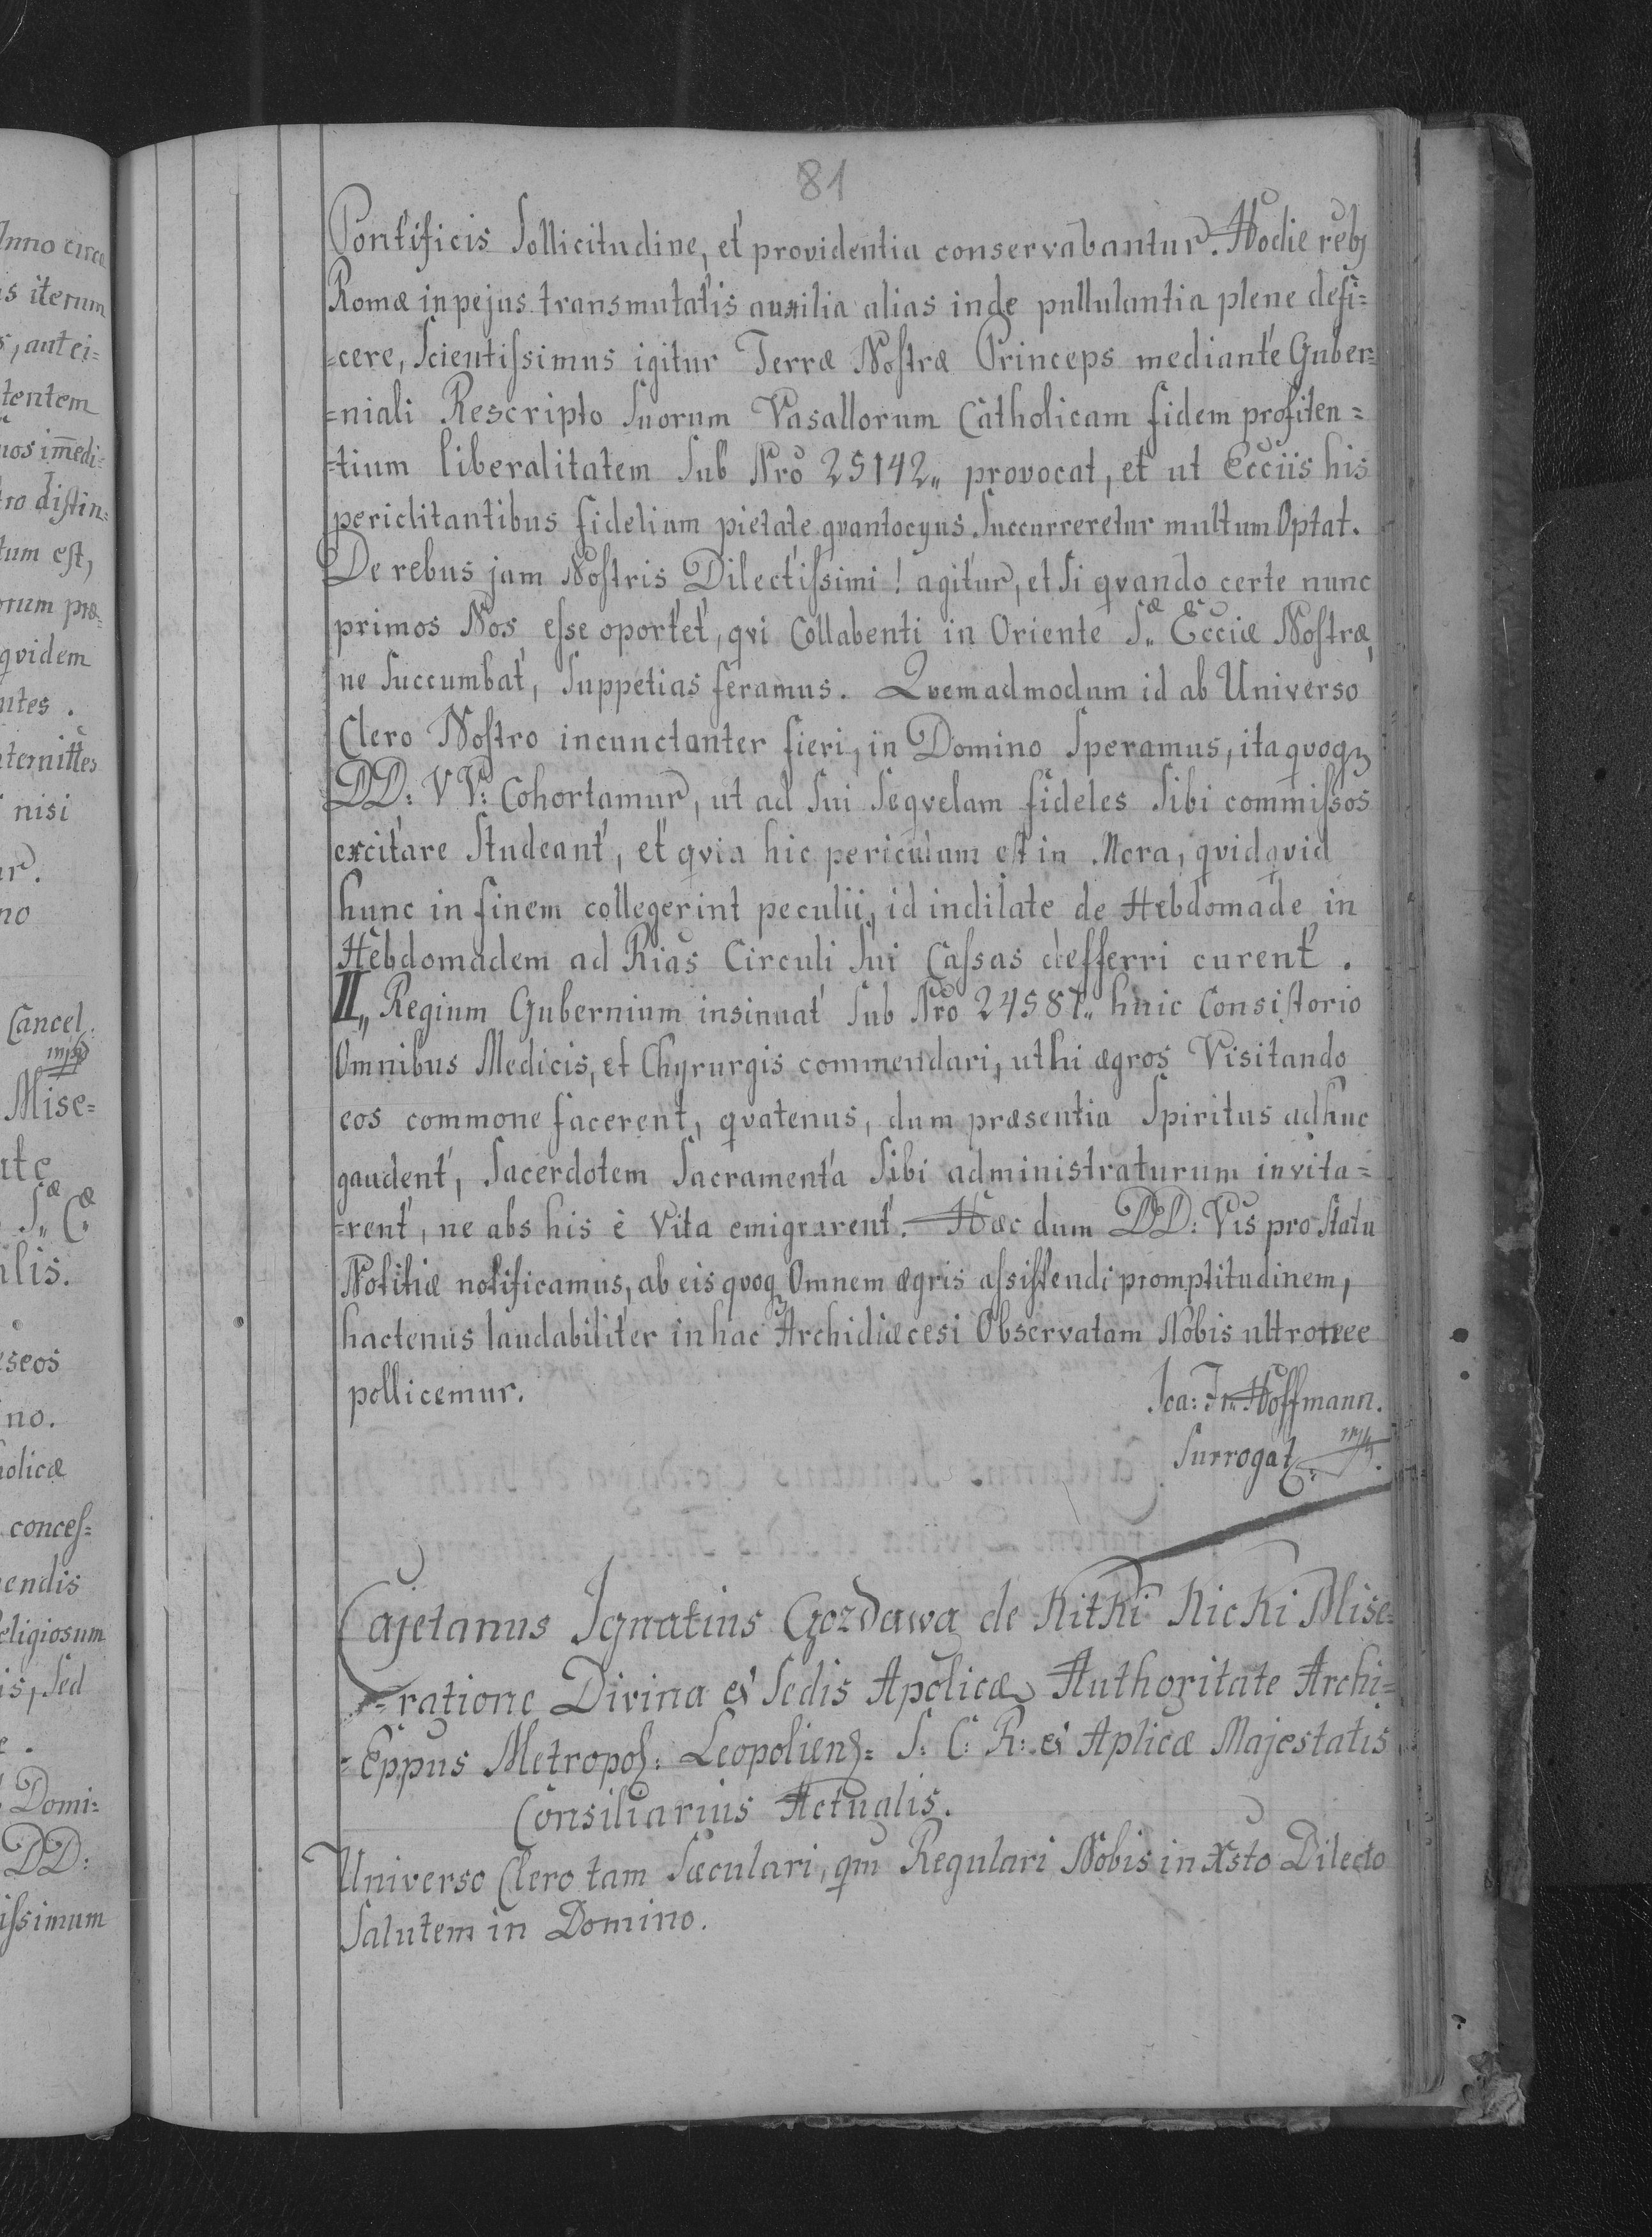 Inno circa
is iterum
s, aut ei=
tentem
nos im̄edi=
tro distin=
tum est,
orum præ=
qvidem
ntes.
nisi
ur.
no
Cancel:
mp
Mise=
ate
Sæ Cæ
alis.
eseos
no.
holicæ
conces=
endis
eligiosum
is, Sed
e.
Domi=
DD:
issimum
81
Pontificis Sollicitudine, et providentia conservabantur. Hodie rebȝ
Romæ in pejus transmutatis auxilia alias inde pullulantia plene defi=
=cere, Scientissimus igitur Terræ Nostræ Princeps mediante Guber=
=niali Rescripto Suorum Vasallorum Catholicam fidem profiten=
=tium liberalitatem Sub Nrō 25142„ provocat, et ut Ecciis his
periclitantibus fidelium pietate qvantocyus Succurreretur multum Optat.
De rebus jam Nostris Dilectissimi! agitur, et Si qvando certe nunc
primos Nos esse oportet, qvi Collabenti in Oriente S„æ Ecciæ Nostræ,
ne Succumbat, Suppetias feramus. Qvemadmodum id ab Universo
Clero Nostro incunctanter fieri, in Domino Speramus, ita qvoqȝ
DD: VV: Cohortamur, ut ad Sui Seqvelam fideles Sibi commissos
excitare Studeant, et qvia hic periculum est in Mora, qvidqvid
hunc in finem collegerint peculii, id indilate de Hebdomade in
Hebdomadem ad Rias Circuli Sui Cassas defferri curent.
II„ Regium Gubernium insinuat Sub Nrō 24587„ huic Consistorio
Omnibus Medicis, et Chyrurgis commendari, ut hi ægros Visitando
eos commone facerent, qvatenus, dum præsentia Spiritus adhuc
gaudent, Sacerdotem Sacramenta Sibi administraturum invita=
=rent, ne abs his è Vita emigrarent. Hæc dum DD: Vis pro Statu
Notitiæ notificamus, ab eis qvoqȝ Omnem ægris assistendi promptitudinem,
hactenus laudabiliter in hac Archidiæcesi Observatam Nobis ultronee
pollicemur.
Joa: Fr: Hoffmann.
Surrogat: mp.
Cajetanus Ignatius Gozdawa de Kitki Kicki Mise=
=ratione Divina et Sedis Apolicæ Authoritate Archi=
=Eppus Metropol: Leopoliens= S: C: R: et Aplicæ Majestatis
Consiliarius Actualis.
Universo Clero tam Sæculari, qm Regulari Nobis in Xsto Dilecto
Salutem in Domino.